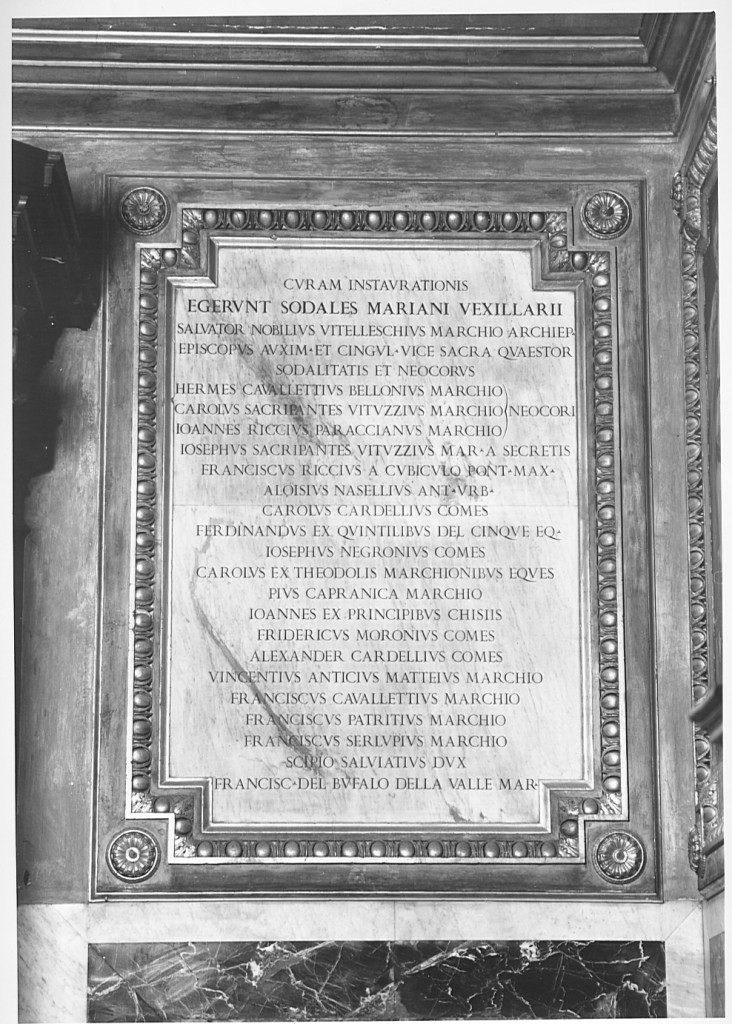 CVRAM INSTAVRATIONIS
EGERVNT SODALES MARIANI VEXILLARII
SALVATOR NOBILIVS VITELLESCHIVS MARCHIO ARCHIEP·
EPISCOPVS AVXIM·ET CINGVL·VICE SACRA QVAESTOR
SODALITATIS ET NEOCORVS
HERMES CAVALLETTIVS BELLONIVS MARCHIO
CAROLVS SACRIPANTES VITVZZIVS MARCHIO NEOCORI
IOANNES RICCIVS PARACCIANVS MARCHIO
IOSEPHVS SACRIPANTES VITVZZIVS MAR·A SECRETIS
FRANCISCVS RICCIVS A CVBICVLO PONT·MAX·
ALOISIVS NASELLIVS ANT·VRB·
CAROLVS CARDELLIVS COMES
FERDINANDVS EX QVINTILIBVS DEL CINQVE EQ·
IOSEPHVS NEGRONIVS COMES
CAROLVS EX THEODOLIS MARCHIONIBVS EQVES
PIVS CAPRANICA MARCHIO
IOANNES EX PRINCIPIBVS CHISIIS
FRIDERICVS MORONIVS COMES
ALEXANDER CARDELLIVS COMES
VINCENTIVS ANTICIVS MATTEIVS MARCHIO
FRANCISCVS CAVALLETTIVS MARCHIO
FRANCISCVS PATRITIVS MARCHIO
FRANCISCVS SERLVPIVS MARCHIO
SCIPIO SALVIATIVS DVX
FRANCISC·DEL BVFALO DELLA VALLE MAR·